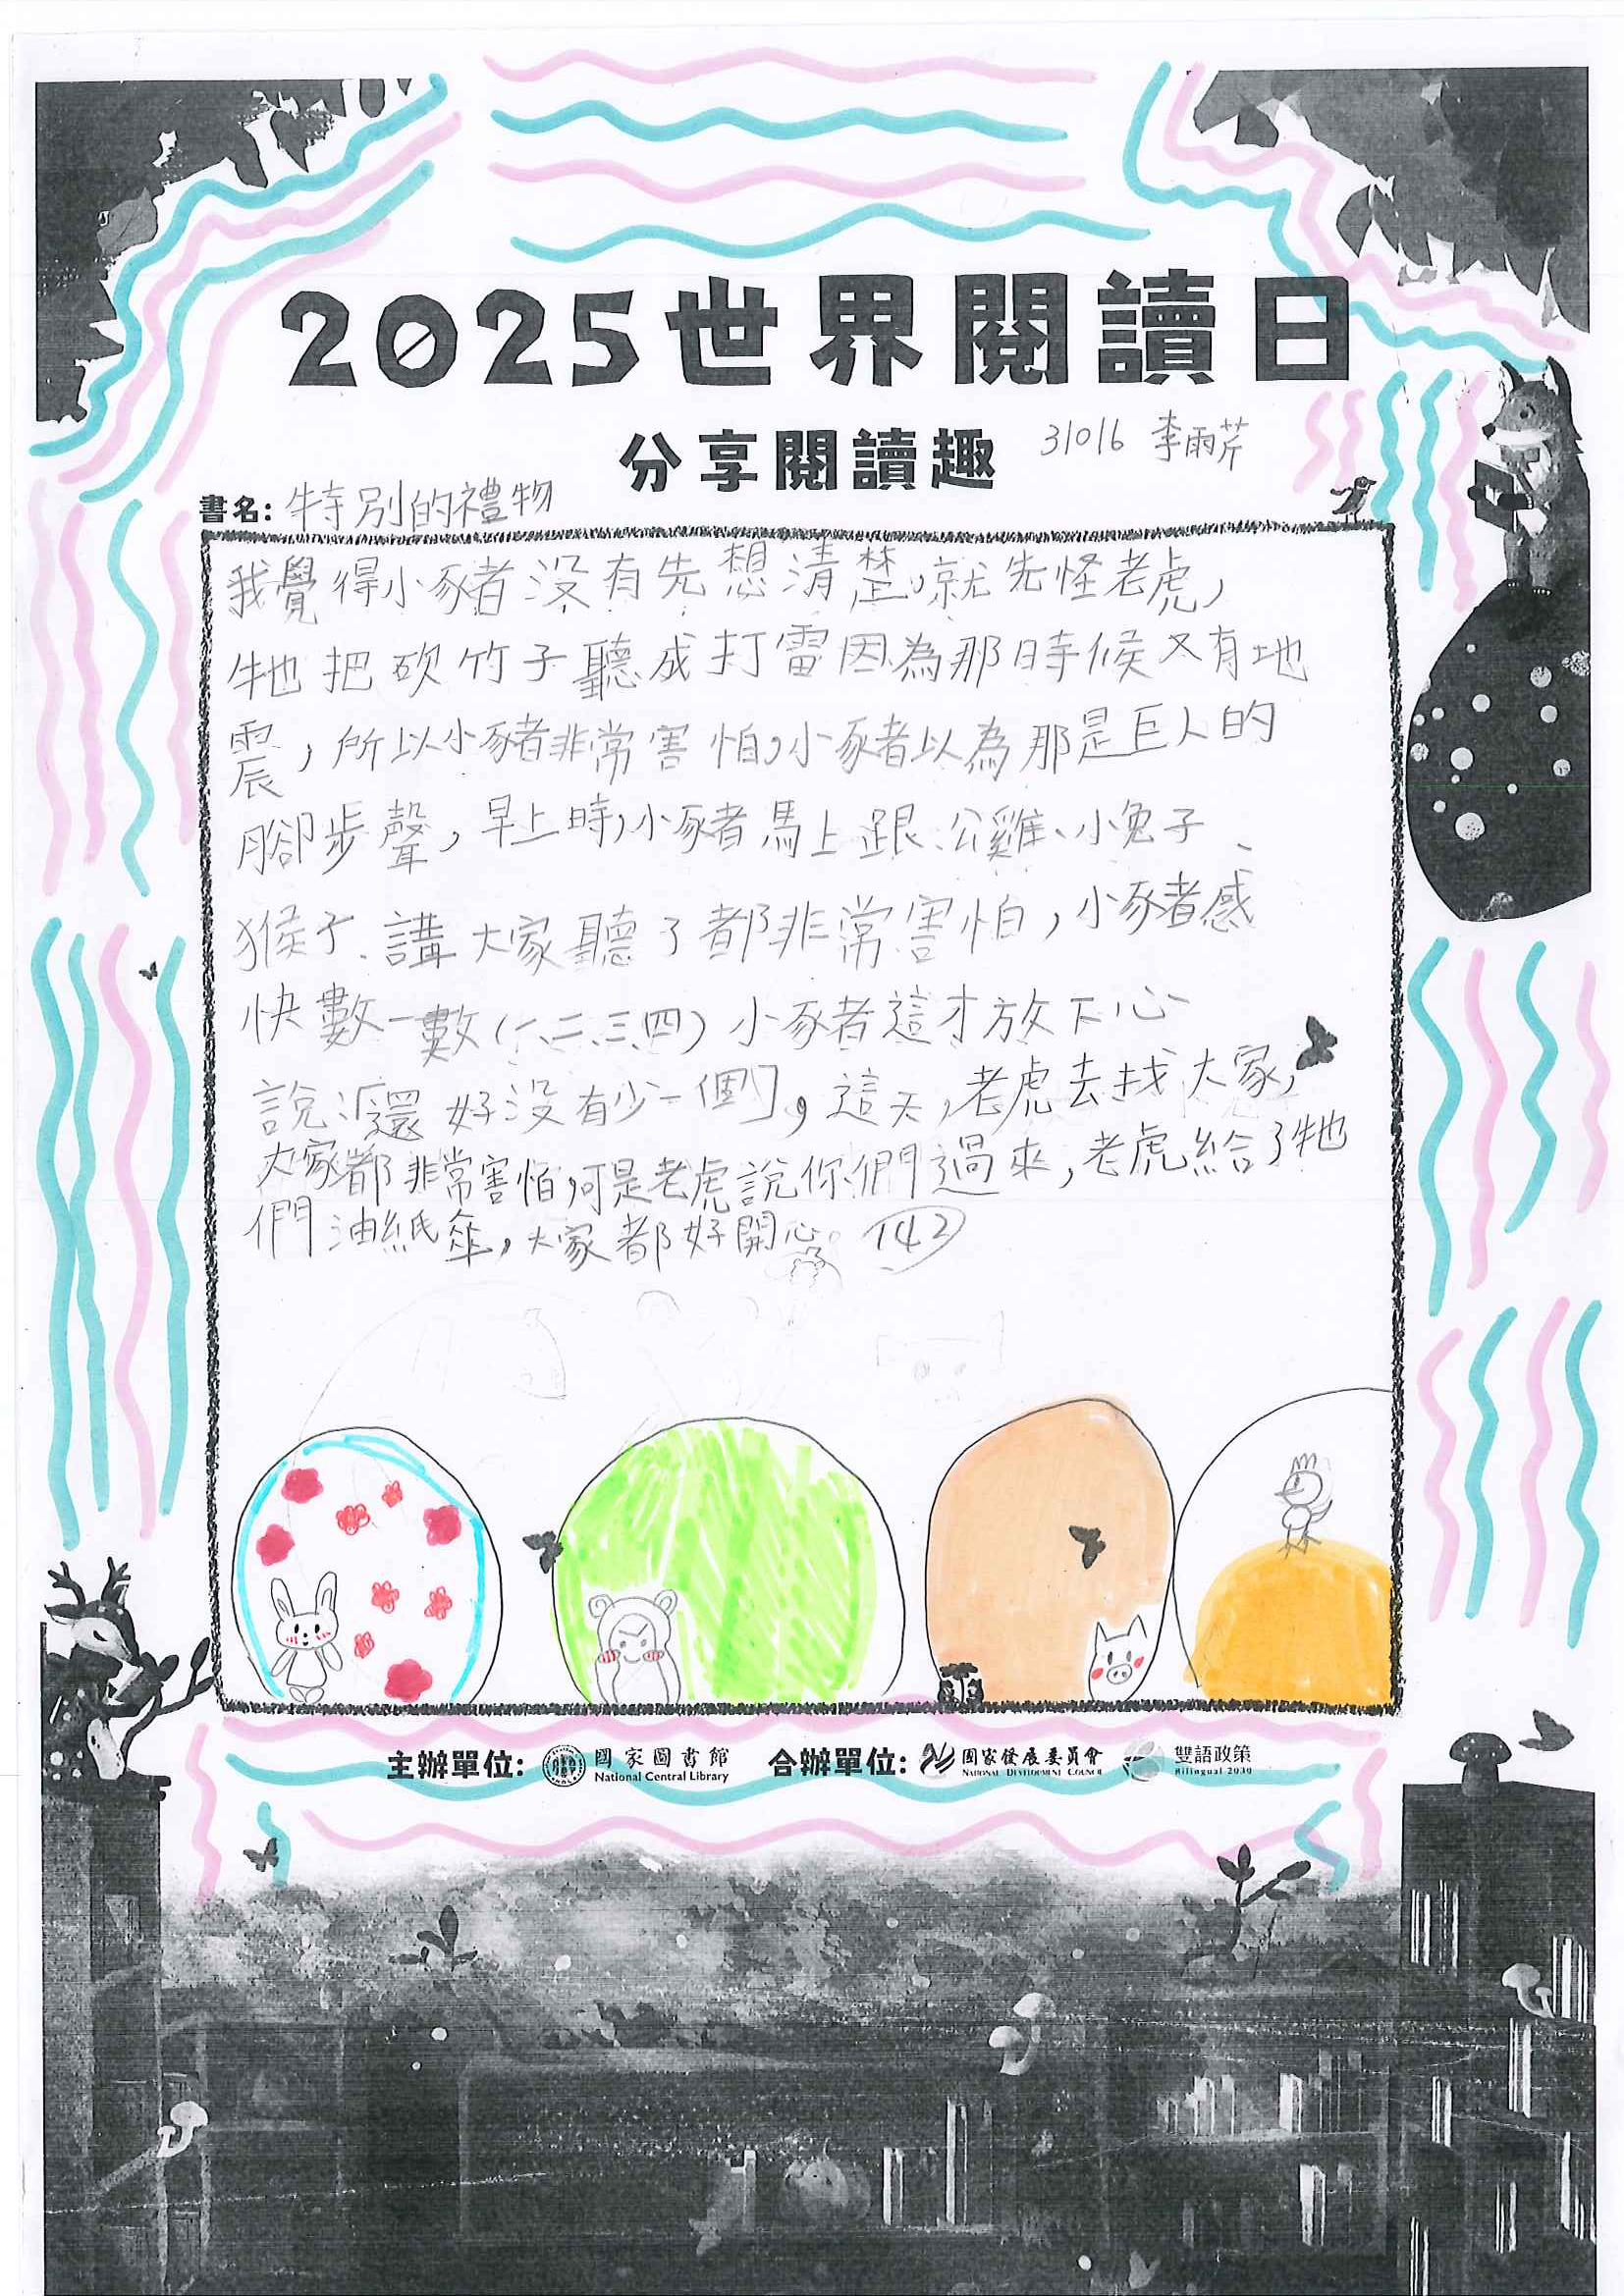 2025世界閱讀日
分享閱讀趣
31016 李雨芹
書名: 特別的禮物
我覺得小豬沒有先想清楚,就先怪老虎,
牠把砍竹子聽成打雷因為那時候又有地
震,所以小豬非常害怕,小豬以為那是巨人的
腳步聲,早上時,小豬馬上跟公雞、小兔子、
猴子講大家聽了都非常害怕,小豬感
快數一數(一、二、三、四)小豬這才放下心
說:「還好沒有少一個」,這天,老虎去找大家,
大家都非常害怕,可是老虎說你們過來,老虎給了牠
們油紙傘,大家都好開心。 142
主辦單位: 國家圖書館 National Central Library 合辦單位: 國家發展委員會 NATIONAL DEVELOPMENT COUNCIL 雙語政策 Bilingual 2030